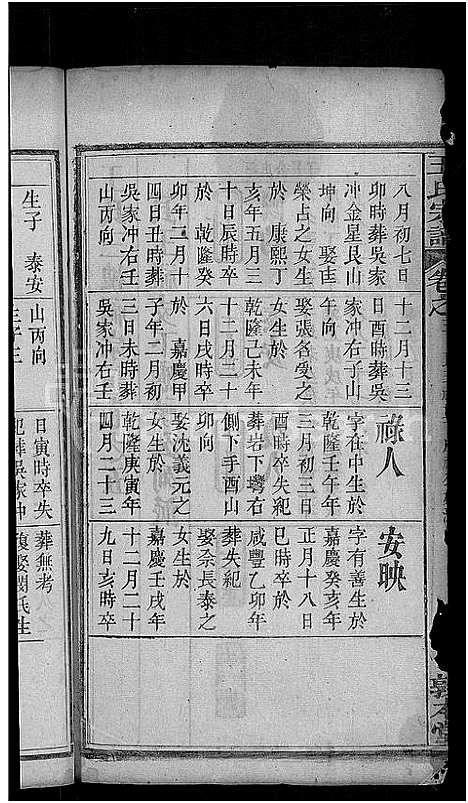 王氏宗譜
卷之
敦本堂
八月初七日
卯時葬吳家
冲金星艮山
坤向　娶茰
榮占之女生
於　康熙丁
亥年五月三
十日辰時卒
於　乾隆癸
卯年二月十
四日丑時葬
吳家冲右壬
山丙向
十二月十三
日酉時葬吳
家冲右子山
午向庚戌年
娶張各受之
女生於
乾隆己未年
十二月二十
六日戌時卒
於　嘉慶甲
子年二月初
三日未時葬
吳家冲右壬
祿人
字在中生於
乾隆壬午年
三月初三日
酉時卒失紀
葬岩下塆右
側下手酉山
卯向
娶沈義元之
女生於
乾隆庚寅年
四月二十三
安映
字有善生於
嘉慶癸亥年
正月十八日
巳時卒於
咸豐乙卯年
葬失紀
娶佘長泰之
女生於
嘉慶壬戌年
十二月二十
九日亥時卒
山丙向
生子　泰安
生子三
日寅時卒失
紀葬吳家冲
葬無考
復娶閔氏生